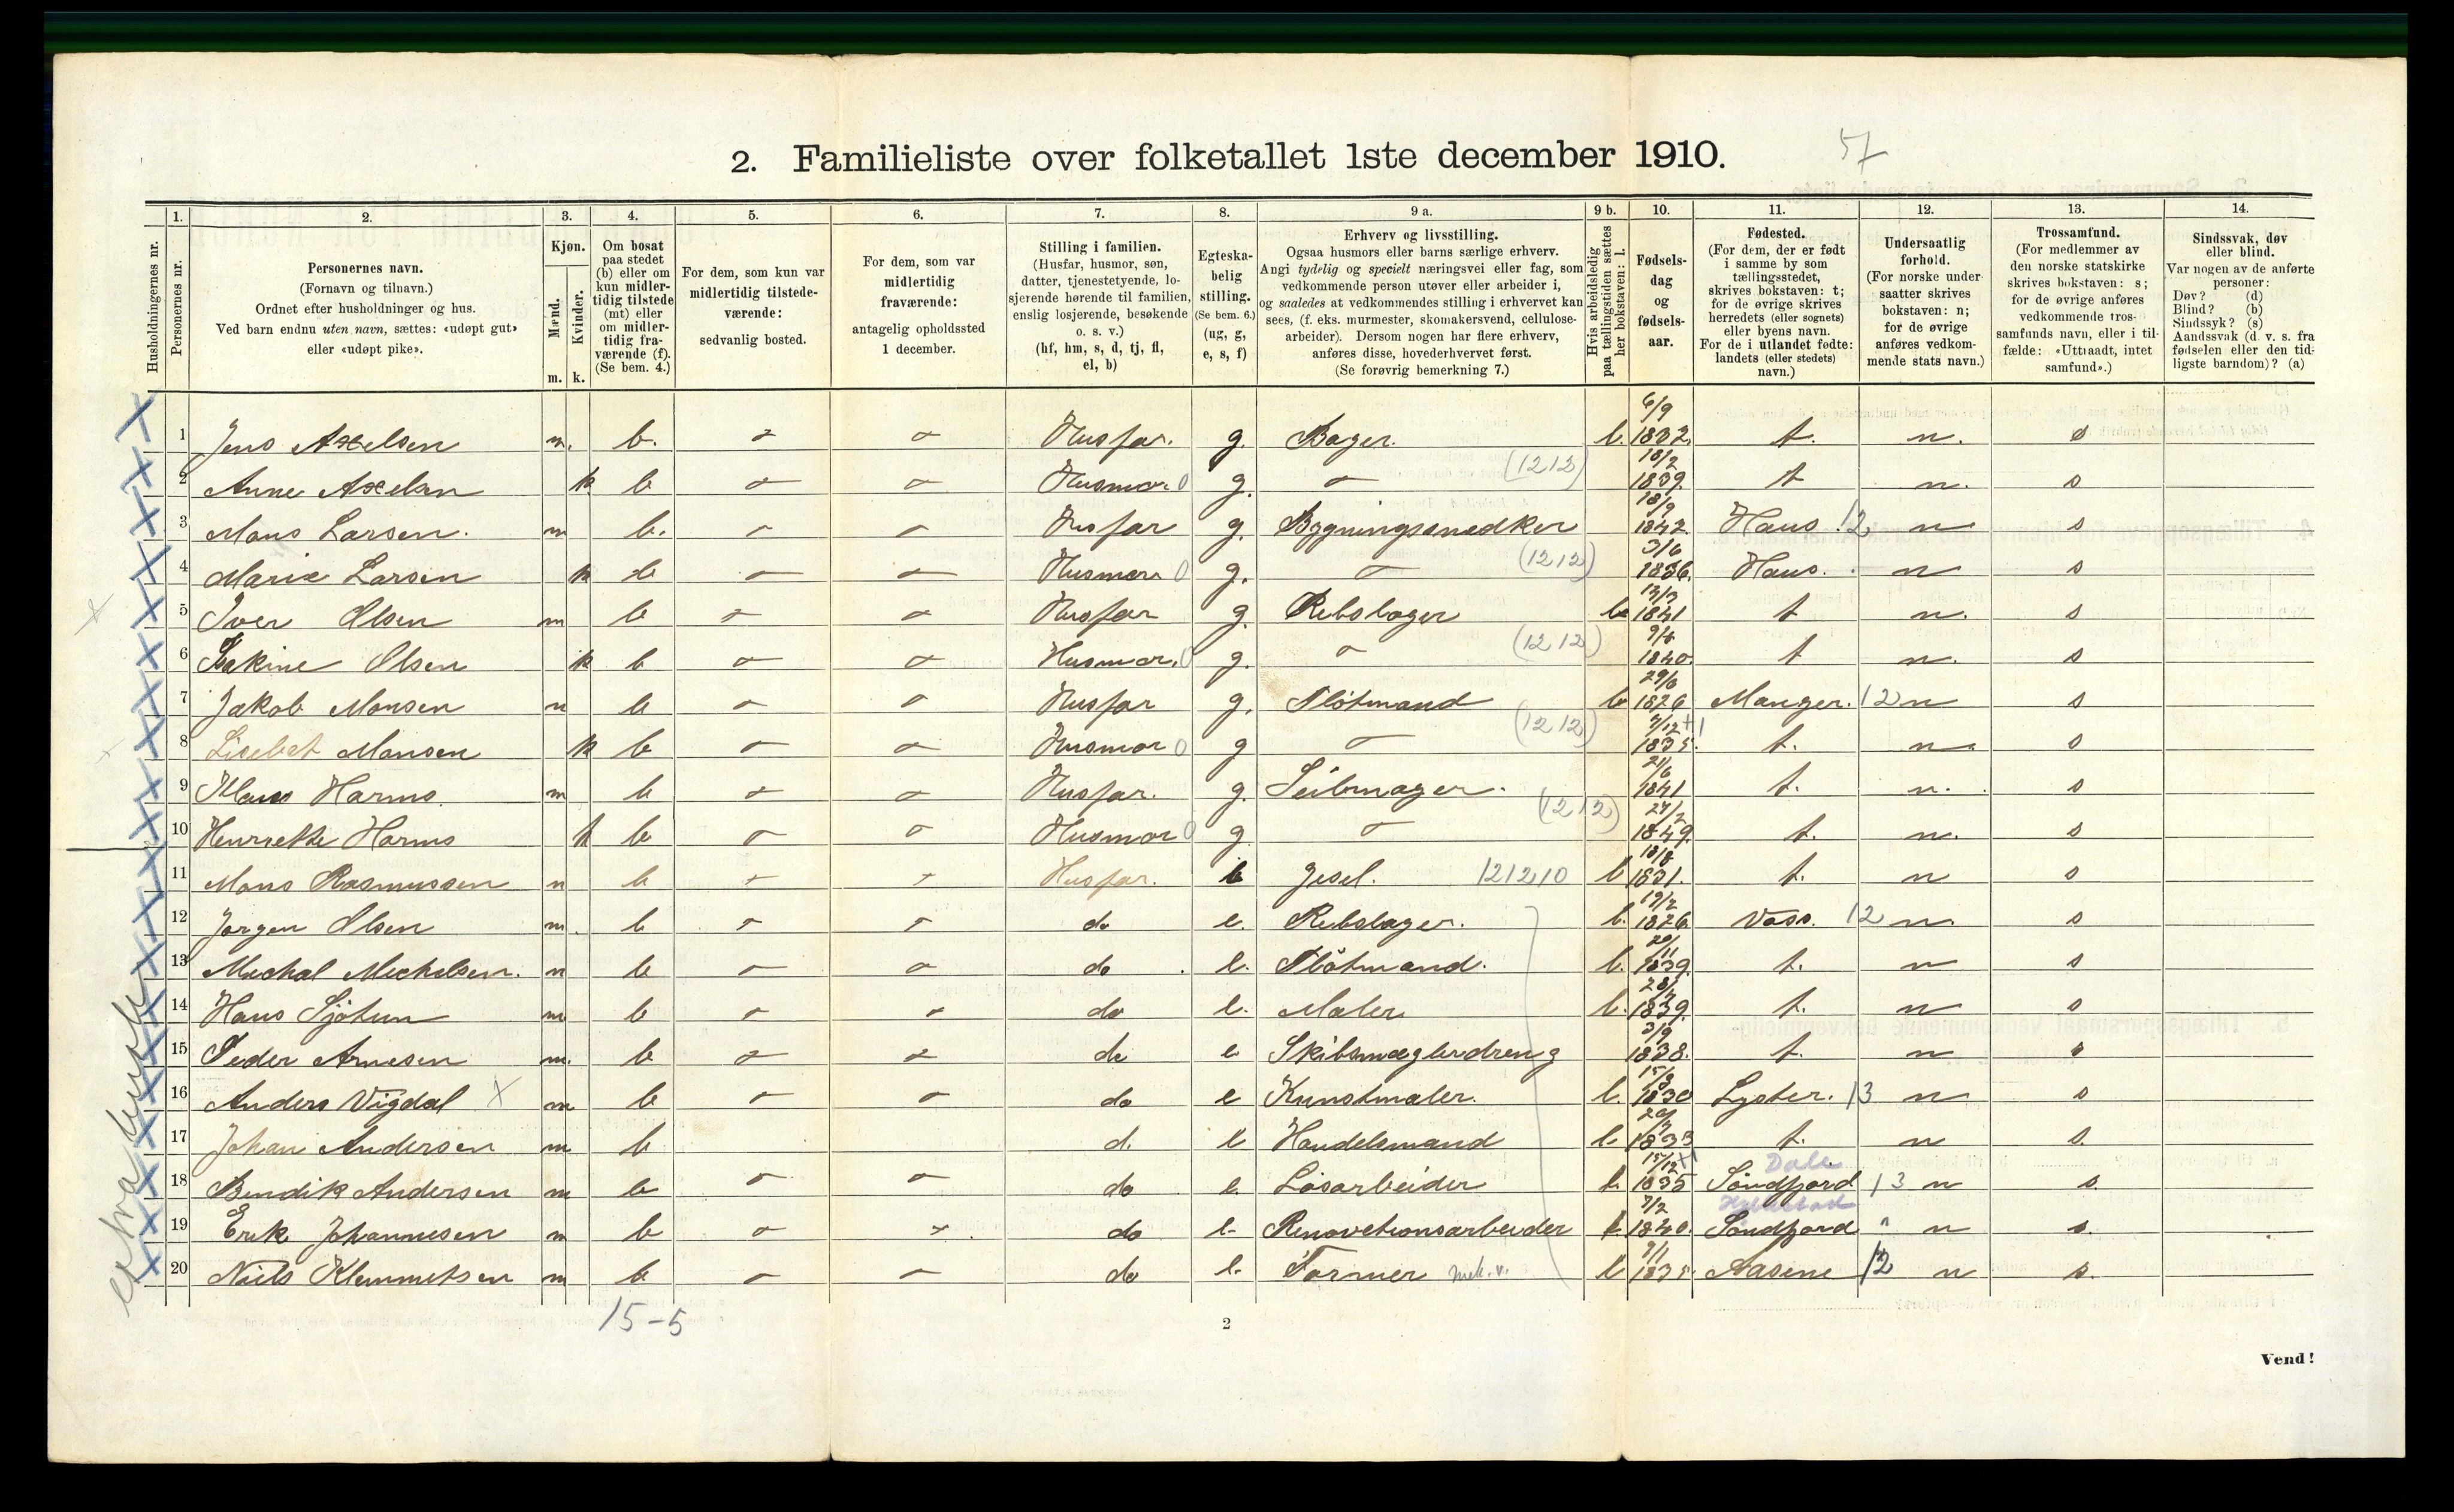 2. Familieliste over folketallet 1ste december 1910.
57
Husholdningernes nr.
1. Personernes nr.
2. Personernes navn. (Fornavn og tilnavn.) Ordnet efter husholdninger og hus. Ved barn endnu uten navn, sættes: «udøpt gut» eller «udøpt pike».
3. Kjøn. Mænd. m. Kvinder. k.
4. Om bosat paa stedet (b) eller om kun midlertidig tilstede (mt) eller om midlertidig fraværende (f). (Se bem. 4.)
5. For dem, som kun var midlertidig tilstedeværende: sedvanlig bosted.
6. For dem, som var midlertidig fraværende: antagelig opholdssted 1 december.
7. Stilling i familien. (Husfar, husmor, søn, datter, tjenestetyende, losjerende hørende til familien, enslig losjerende, besøkende o. s. v.) (hf, hm, s, d, tj, fl, el, b)
8. Egteskabelig stilling. (Se bem. 6.) (ug, g, e, s, f)
9 a. Erhverv og livsstilling. Ogsaa husmors eller barns særlige erhverv. Angi tydelig og specielt næringsvei eller fag, som vedkommende person utøver eller arbeider i, og saaledes at vedkommendes stilling i erhvervet kan sees, (f. eks. murmester, skomakersvend, cellulosearbeider). Dersom nogen har flere erhverv, anføres disse, hovederhvervet først. (Se forøvrig bemerkning 7.)
9 b. Hvis arbeidsledig paa tællingstiden sættes her bokstaven: l.
10. Fødselsdag og fødselsaar.
11. Fødested. (For dem, der er født i samme by som tællingsstedet, skrives bokstaven: t; for de øvrige skrives herredets (eller sognets) eller byens navn. For de i utlandet fødte: landets (eller stedets) navn.)
12. Undersaatlig forhold. (For norske undersaatter skrives bokstaven: n; for de øvrige anføres vedkommende stats navn.)
13. Trossamfund. (For medlemmer av den norske statskirke skrives bokstaven: s; for de øvrige anføres vedkommende trossamfunds navn, eller i tilfælde: «Uttraadt, intet samfund».)
14. Sindssvak, døv eller blind. Var nogen av de anførte personer: Døv? (d) Blind? (b) Sindssyk? (s) Aandssvak (d. v. s. fra fødselen eller den tidligste barndom)? (a)
1 Jens Axelsen m. b. Husfar. g. Bager. l. 6/9 1832. t. n. s
2 Anne Axelsen k b Husmor 0 g. (1212) 18/2 1839. t n. s
3 Mons Larsen. m b. Husfar g. Bygningssnedker 18/9 1842. Haus. 12 n s
4 Marie Larsen k b Husmor 0 g. (1212) 3/6 1836. Haus. n s
5 Iver Olsen m b Husfar g. Rebslager l 1841 t n. s
6 Olsen k b Husmor. 0 g. (1212) 1840. t n. s
7 Jakob Monsen m b Husfar g. Flötmand l 29/6 1826 Manger. 12 n s
8 Lisebet Monsen k b Husmor 0 g (1212) 7/12 +1 1835. t. n s
9 Klaus Harms. m b Husfar. g. Seilmager. 21/6 1841 t. n. s
10 Henriette Harms k b Husmor 0 g (1212) 24/2 1849. t. n. s
11 Mons Rasmussen m b Husfar. 121210 l 18/8 1831. t. n s
12 Jørgen Olsen m. b do e. Rebslager. l. 19/2 1826. Voss. 12 n. s
13 Michal Michelsen. m b do e. Flötmand. l. 20/11 1839. t. n s
14 Hans Sjötun m b do e. Maler l. 1839. t. n s
15 Peder Arnesen m. b do e Skibsmæglerdreng 3/9 1838. t. n s
16 Anders Vigdal X m b do e Kunstmaler. l. 1830 Lyster. 13 n s
17 Johan Andersen m b d. e Handelsmand l. 1833 t. n s.
18 Bendik Andersen m b do e. Løsarbeider l. 15/12 +1 1835 Dale Söndfjord 13 n s.
19 Erik Johannesen m b do e. Renovationsarbeider l. 7/2 1840. Hyllestad Söndfjord " n s.
20 Niels Klemmetsen m b do e. Former mek. v. l 9/1 1835. Aasene 12 n s.
15-5
2
Vend!